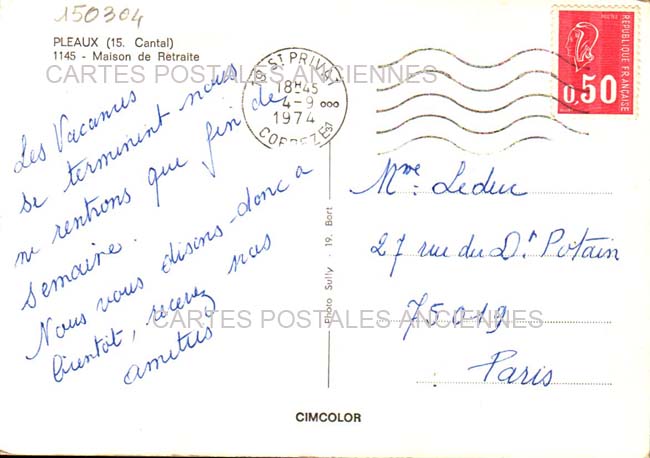 150304
PLEAUX (15. Cantal)
1145 - Maison de Retraite
CARTES POSTALES ANCIENNES
Les Vacances
se terminent nous
ne rentrons que fin de
semaine.
Nous vous disons donc a
bientôt, recevez nos
amitiés
19 ST PRIVAT
18H45
4-9
1974
CORREZE
REPUBLIQUE FRANÇAISE
0,50
Photo Sully - 19. Bort
Mme Leduc
27 rue du Dr Potain
75019
Paris
CARTES POSTALES ANCIENNES
CIMCOLOR